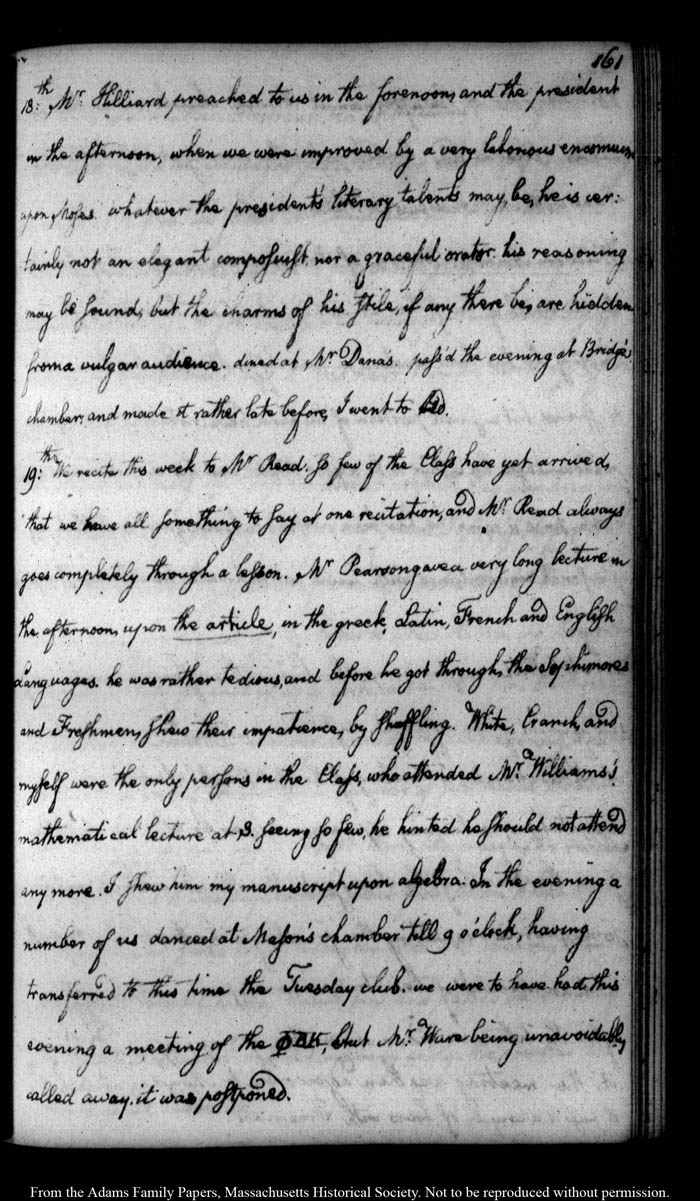 161
18:th Mr. Hilliard preached to us in the forenoon, and the president
in the afternoon, when we were improved by a very laborious encomium
upon Moses. whatever the president's literary talents may be, he is cer:
tainly not an elegant composuist, nor a graceful orator. his reasoning
may be sound, but the charms of his stile, if any there be, are hidden
from a vulgar audience. dined at Mr. Dana's. pass'd the evening at Bridge's
chamber, and made it rather late before, I went to bed.
19:th We recite this week to Mr. Read. so few of the Class have yet arrived,
that we have all something to say at one recitation, and Mr. Read always
goes completely through a lesson. Mr. Pearson gave a very long lecture in
the afternoon, upon the article, in the greek, Latin, French and English
Languages. he was rather tedious, and before he got through, the Sophimores
and Freshmen, shew their impatience, by shuffling. White, Cranch, and
myself were the only persons in the Class, who attended Mr. Williams's
mathematical lecture at 3. seeing so few, he hinted he should not attend
any more. I shew him my manuscript upon algebra. In the evening a
number of us danced at Mason's chamber till 9 o'clock, having
transferred to this time the Tuesday club. we were to have had this
evening a meeting of the ΦBK, but Mr. Ware being unavoidably
called away, it was postponed.
From the Adams Family Papers, Massachusetts Historical Society. Not to be reproduced without permission.